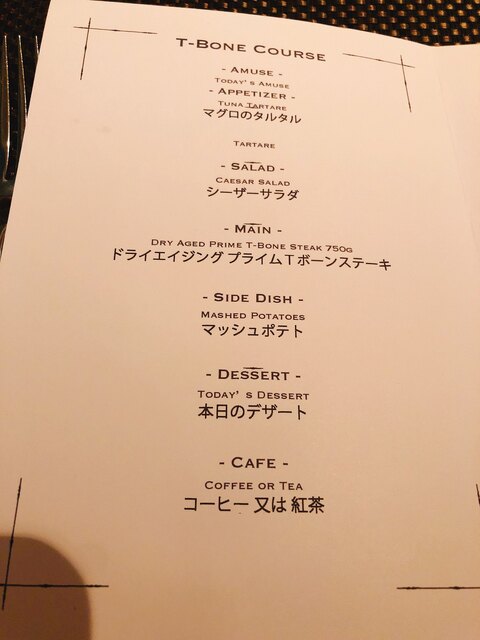 T-Bone Course
- Amuse -
Today's Amuse
- Appetizer -
Tuna Tartare
マグロのタルタル
Tartare
- Salad -
Caesar Salad
シーザーサラダ
- Main -
Dry Aged Prime T-Bone Steak 750g
ドライエイジング プライムTボーンステーキ
- Side Dish -
Mashed Potatoes
マッシュポテト
- Dessert -
Today's Dessert
本日のデザート
- Cafe -
Coffee or Tea
コーヒー 又は 紅茶